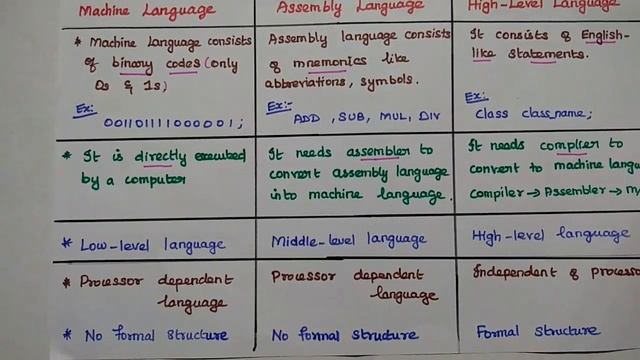 Machine Language
* Machine Language consists
of binary codes (only
0s & 1s)
Ex:
001101111000001;
* It is directly executed
by a computer
* Low-level language
* Processor dependent
language
* No formal structure
Assembly Language
Assembly language consists
of mnemonics like
abbreviations, symbols.
Ex:-
ADD , SUB, MUL, DIV
It needs assembler to
convert assembly language
into machine language.
Middle-level language
Processor dependent
language
No formal structure
High-Level Language
It consists of English-
like statements.
Ex:
Class class_name;
It needs compiler to
convert to machine langu
Compiler → Assembler → m
High-level language
Independent of processo
Formal structure